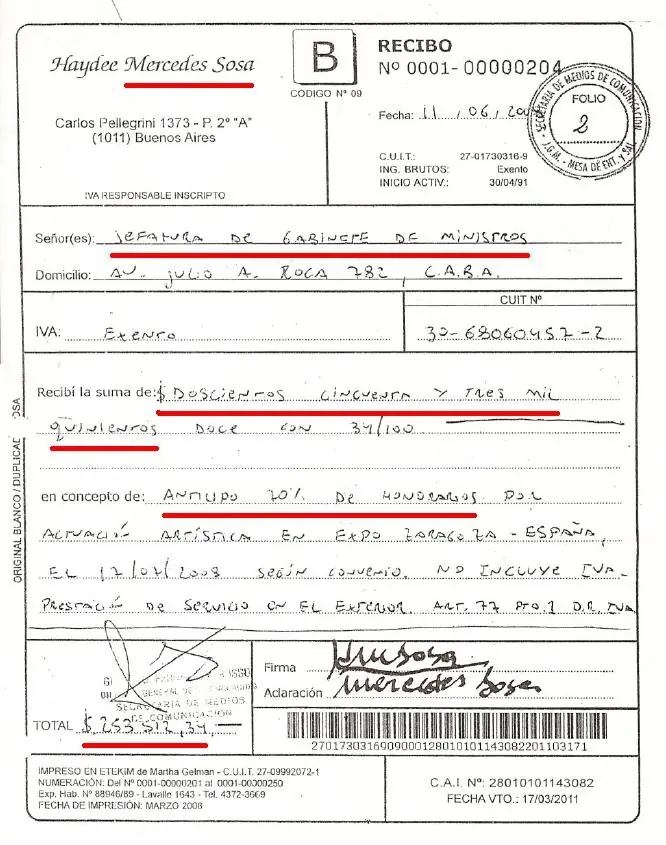 Haydee Mercedes Sosa
Carlos Pellegrini 1373 - P. 2º "A"
(1011) Buenos Aires
IVA RESPONSABLE INSCRIPTO
B
CODIGO Nº 09
RECIBO
Nº 0001- 00000204
Fecha: 11 , 06 , 200
C.U.I.T.: 27-01730316-9
ING. BRUTOS: Exento
INICIO ACTIV.: 30/04/91
SECRETARIA DE MEDIOS DE COMUNICACION
FOLIO
2
J.G.M. - MESA DE ENT. Y SAL.
Señor(es): JEFATURA DE GABINETE DE MINISTROS
Domicilio: AV. JULIO A. ROCA 782, C.A.B.A.
IVA: EXENTO
CUIT Nº
30-68060457-2
Recibí la suma de: $ DOSCIENTOS CINCUENTA Y TRES MIL
QUINIENTOS DOCE CON 34/100
en concepto de: ANTICIPO 70% DE HONORARIOS POR
ACTUACIÓN ARTÍSTICA EN EXPO ZARAGOZA - ESPAÑA,
EL 17/07/2008 SEGÚN CONVENIO. NO INCLUYE IVA.
PRESTACIÓN DE SERVICIO EN EL EXTERIOR. ART. 77 PTO. 1 D.R. IVA
ORIGINAL BLANCO / DUPLICAD OSA
SECRETARIA DE MEDIOS
DE COMUNICACION
TOTAL $ 253.512,34
Firma HMSosa
Aclaración Mercedes Sosa
27017303169090001280101011430822011031​71
IMPRESO EN ETEKIM de Martha Gelman - C.U.I.T. 27-09992072-1
NUMERACIÓN: Del Nº 0001-00000201 al 0001-00000250
Exp. Hab. Nº 88946/89 - Lavalle 1643 - Tel. 4372-3669
FECHA DE IMPRESIÓN: MARZO 2008
C.A.I. Nº: 28010101143082
FECHA VTO.: 17/03/2011